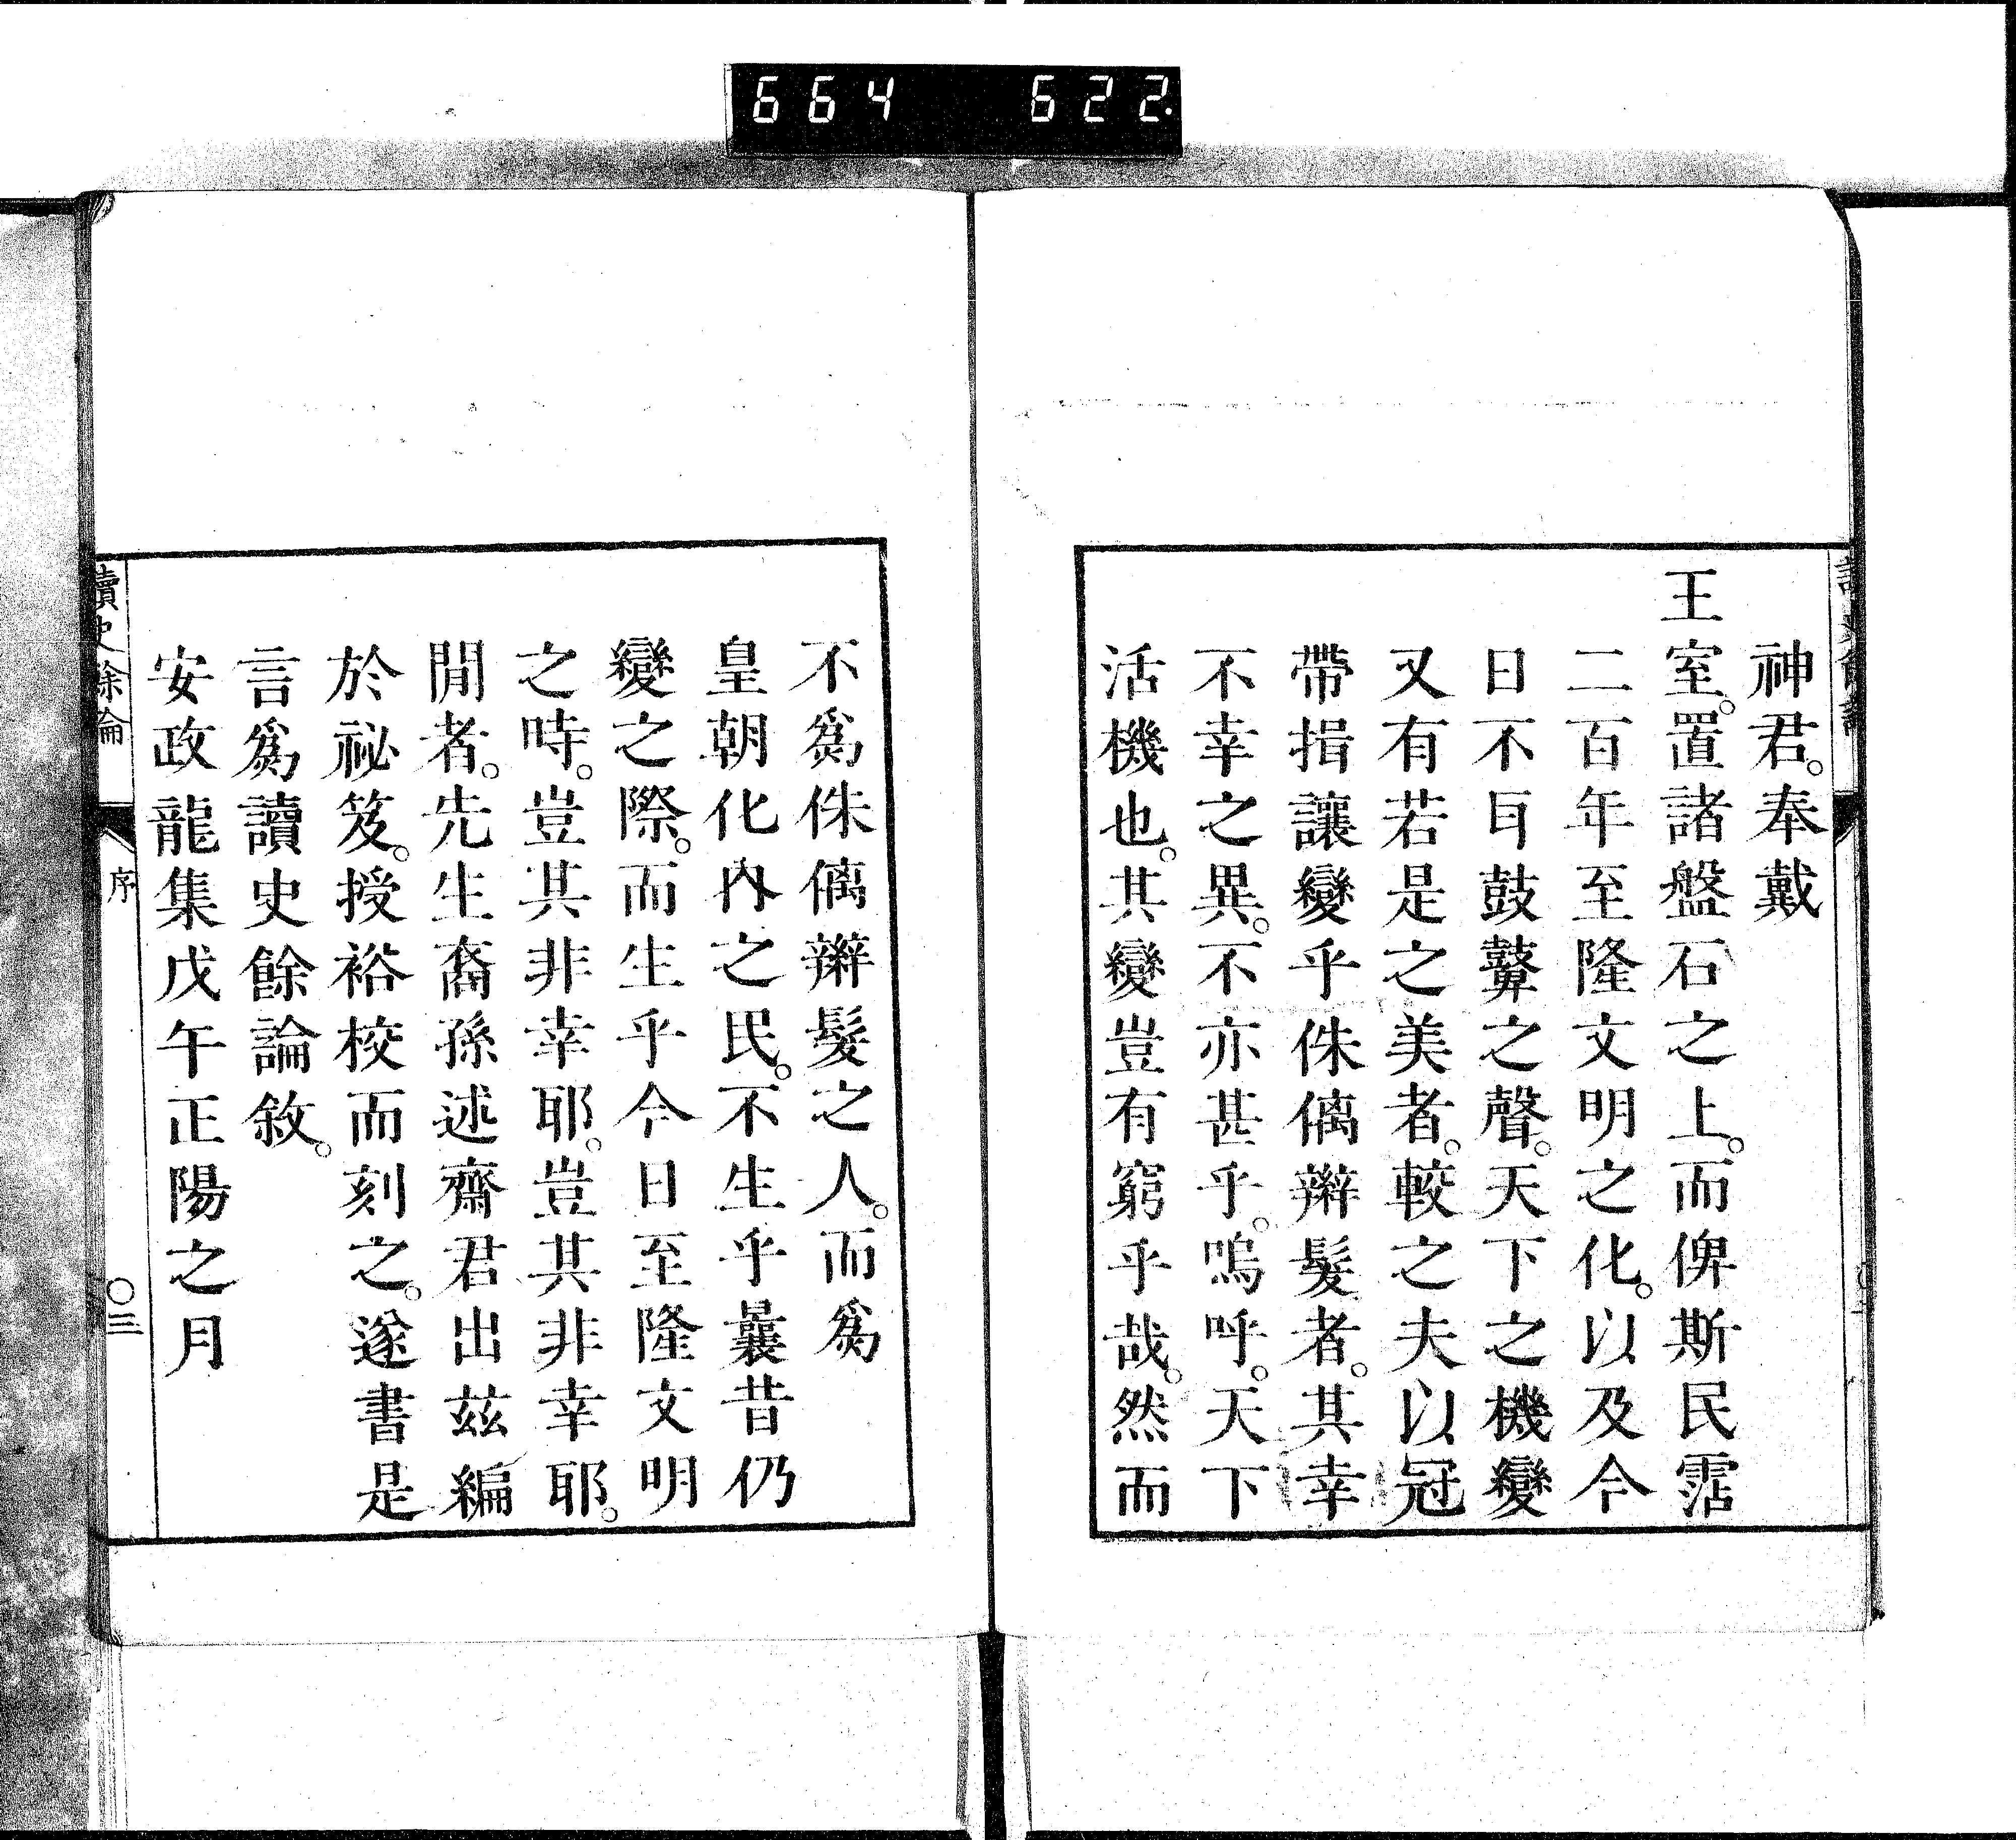 664 622.
神君。奉戴
王室。置諸盤石之上。而俾斯民霑
二百年至隆文明之化。以及今
日不耳鼓鼙之聲。天下之機變
又有若是之美者。較之夫以冠
帶揖讓變乎侏𠌯辮髮者。其幸
不幸之異。不亦甚乎。嗚呼。天下
活機也。其變豈有窮乎哉。然而
不爲侏𠌯辮髮之人。而爲
皇朝化內之民。不生乎曩昔仍
變之際。而生乎今日至隆文明
之時。豈其非幸耶。豈其非幸耶。
閒者。先生裔孫述齋君出茲編
於祕笈。授裕校而刻之。遂書是
言爲讀史餘論敘。
安政龍集戊午正陽之月
讀史餘論 序 〇三